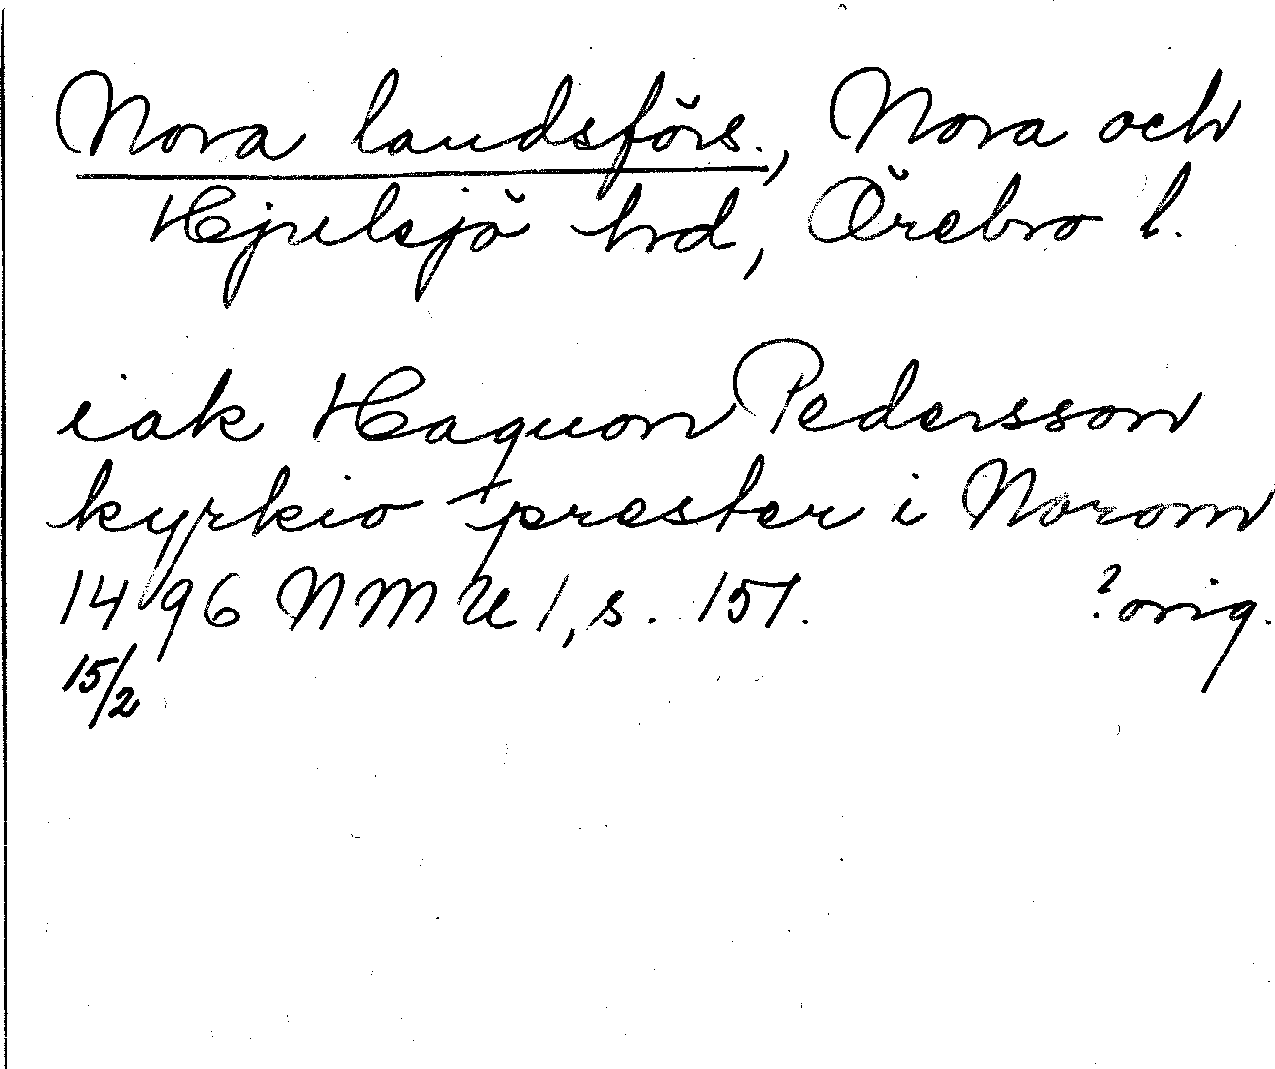 Nora landsförs., Nora och
Hjulsjö hrd, Örebro l.
iak Haquon Pedersson
kyrkio prester i Norom
1496 NMU 1, s. 151. ? orig.
15/2